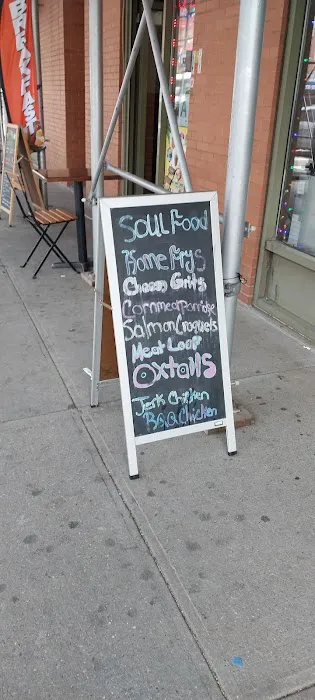 BREAKFAST
SOUL Food
Home Frys
Cheesy Grits
Cornmeal Porridge
Salmon Croquets
Meat Loaf
Oxtails
Jerk Chicken
BBQ Chicken